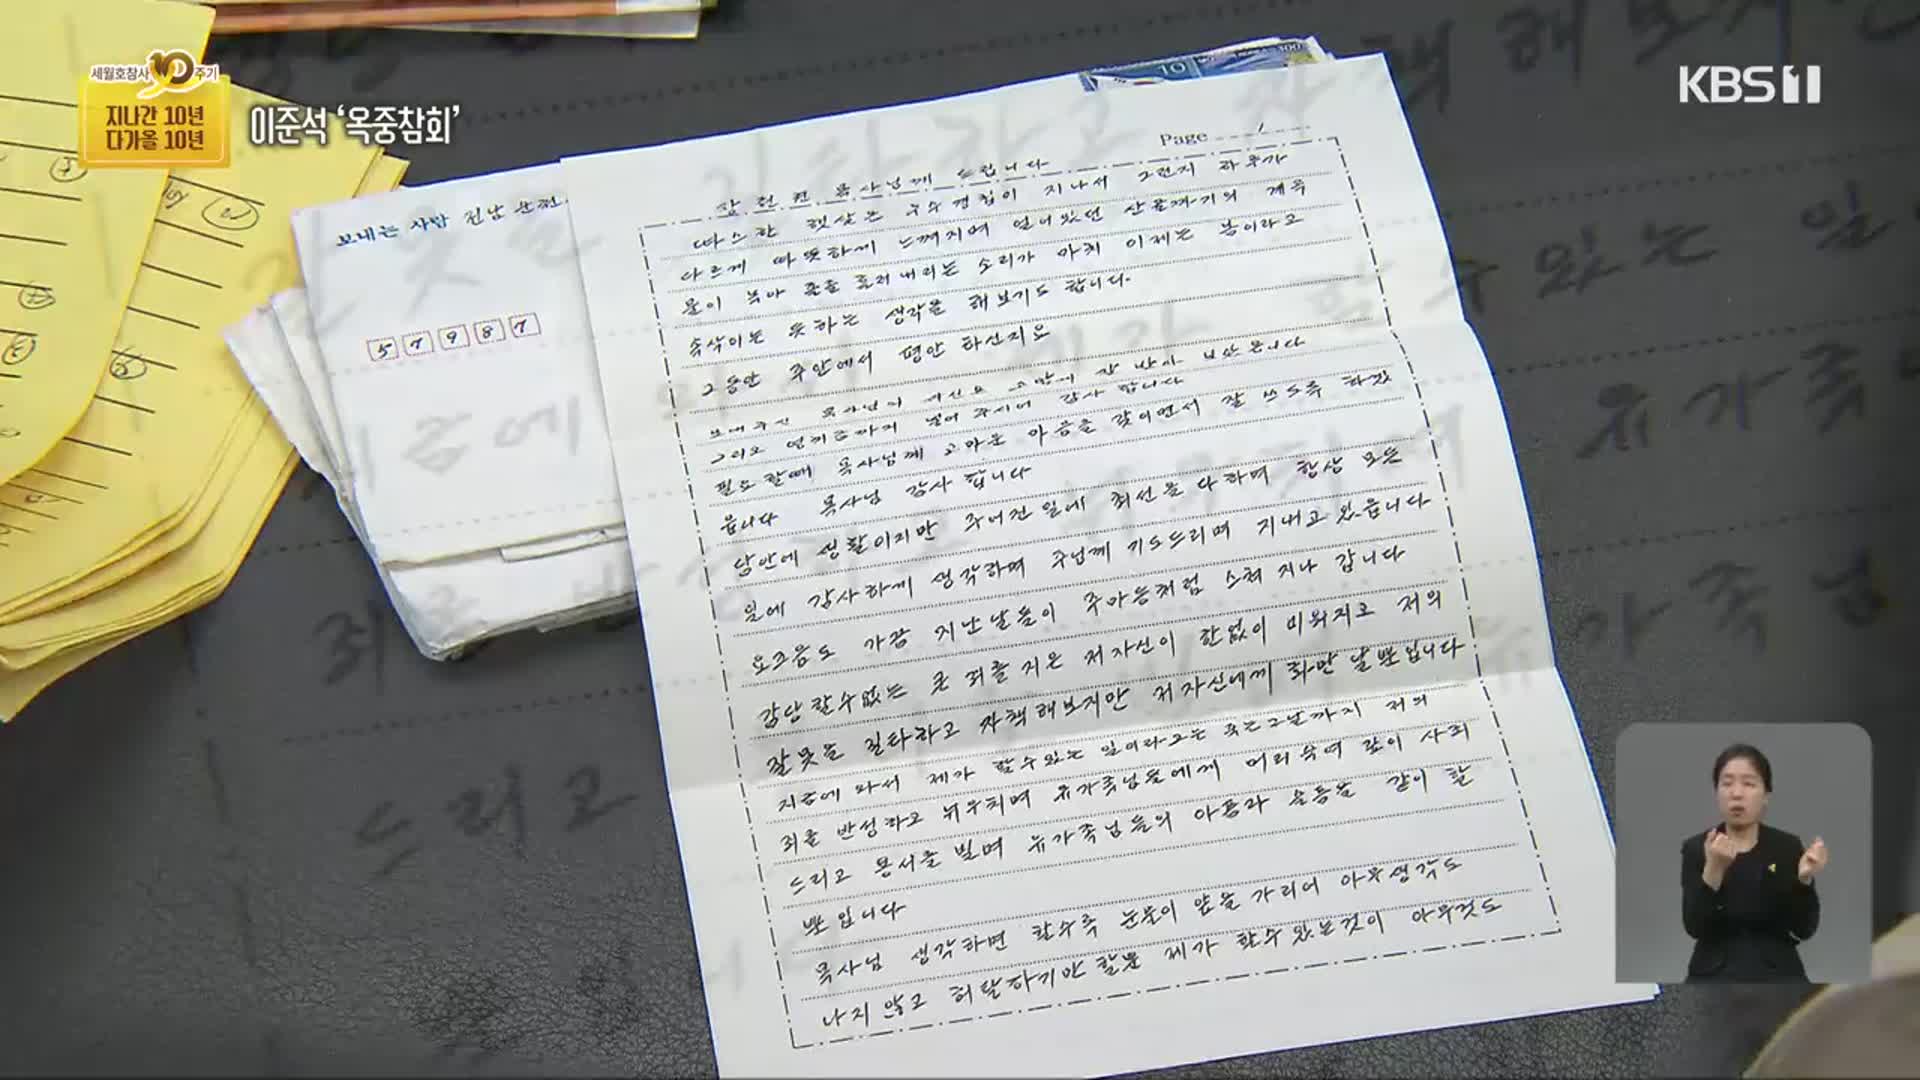 세월호참사 10주기
지나간 10년
다가올 10년
이준석 ‘옥중참회’
KBS 1
보내는 사람 전남 순천
57987
Page 1
장헌권 목사님께 드립니다
따스한 햇살은 우수경칩이 지나서 그런지 하루가
다르게 따뜻하게 느껴지며 얼어있던 산골짜기의 계곡
물이 녹아 졸졸 흘러내리는 소리가 마치 이제는 봄이라고
속삭이는 듯하는 생각을 해보기도 합니다.
그동안 주안에서 평안 하신지요
보내주신 목사님의 서신은 고맙게 잘 받아 보았읍니다
그리고 영치금까지 넣어 주시어 감사 합니다
필요할때 목사님께 고마운 마음을 갖이면서 잘 쓰도록 하겠
읍니다 목사님 감사합니다
담안에 생활이지만 주어진 일에 최선을 다하며 항상 모든
일에 감사하게 생각하며 주님께 기도드리며 지내고 있읍니다
요즈음도 가끔 지난날들이 주마등처럼 스쳐 지나 갑니다
감당할수없는 큰 죄를 지은 저 자신이 한없이 미워지고 저의
잘못을 질타하고 자책해보지만 저 자신에게 화만 날뿐입니다
지금에 와서 제가 할수있는 일이라고는 죽는그날까지 저의
죄를 반성하고 뉘우치며 유가족님들에게 머리숙여 깊이 사죄
드리고 용서를 빌며 유가족님들의 아픔과 슬픔을 같이 할
뿐입니다
목사님 생각하면 할수록 눈물이 앞을 가리어 아무생각도
나지 않고 허탈하기만 할뿐 제가 할수있는것이 아무것도